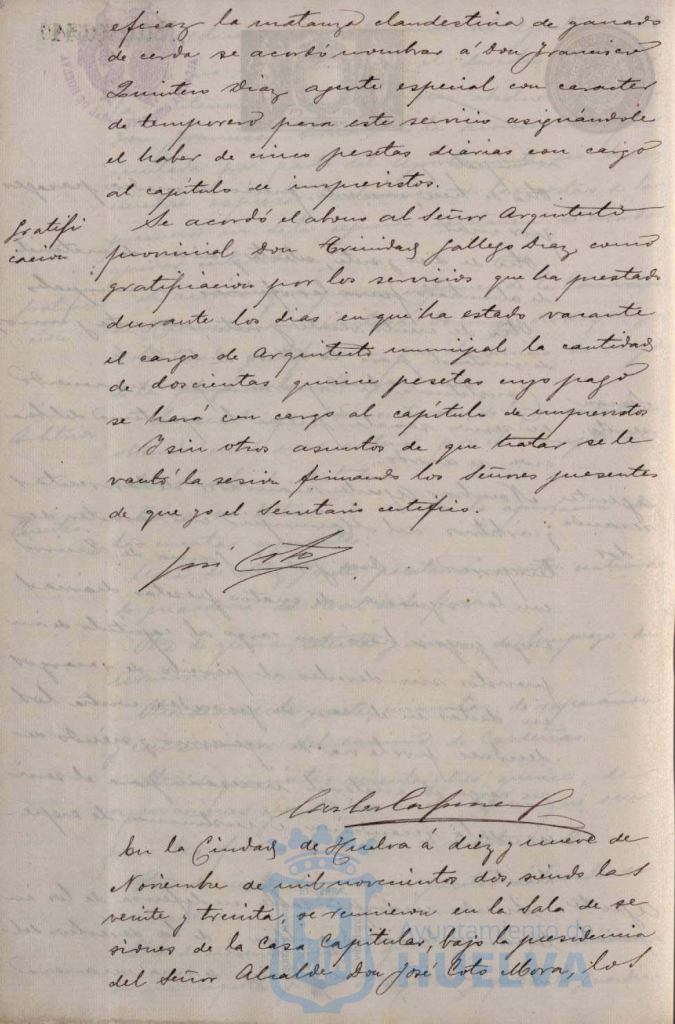 eficaz la matanza clandestina de ganado
de cerda se acordó nombrar á Don Francisco
Quintero Diaz agente especial con caracter
de temporero para este servicio asignándole
el haber de cinco pesetas diarias con cargo
al capítulo de imprevistos.
Gratifi
cacion
Se acordó el abono al Señor Arquitecto
provincial Don Trinidad Gallego Diaz como
gratificacion por los servicios que ha prestado
durante los dias en que ha estado vacante
el cargo de Arquitecto municipal la cantidad
de doscientas quince pesetas cuyo pago
se hará con cargo al capítulo de imprevistos
Y sin otros asuntos de que tratar se le
vantó la sesion firmando los Señores presentes
de que yo el Secretario certifico.
José Coto
En la Ciudad de Huelva á diez y nueve de
Noviembre de mil novecientos dos, siendo las
veinte y treinta, se reunieron en la Sala de se
siones de la Casa Capitular, bajo la presidencia
del Señor Alcalde Don José Coto Mora, los
Ayuntamiento de
HUELVA